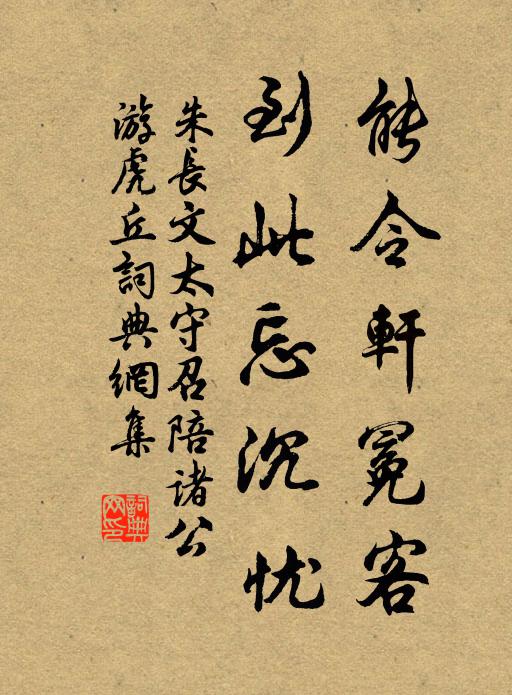 能令軒冕客
到此忘沉忧
朱長文太守召陪诸公
游虎丘詞典網集
詞典
网印